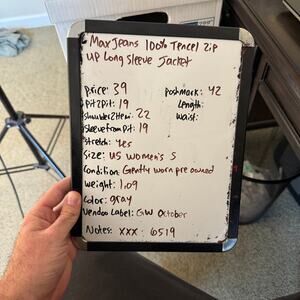 Max Jeans 100% Tencel Zip
up Long Sleeve Jacket
price: 39
poshmark: 42
pit2pit: 19
Length:
shoulder2Hem: 22
waist:
sleevefrompit: 19
stretch: yes
size: US women's S
Condition: Gently worn pre owned
weight: 1.09
Color: gray
Vendoo Label: GW October
Notes: xxx: 6519